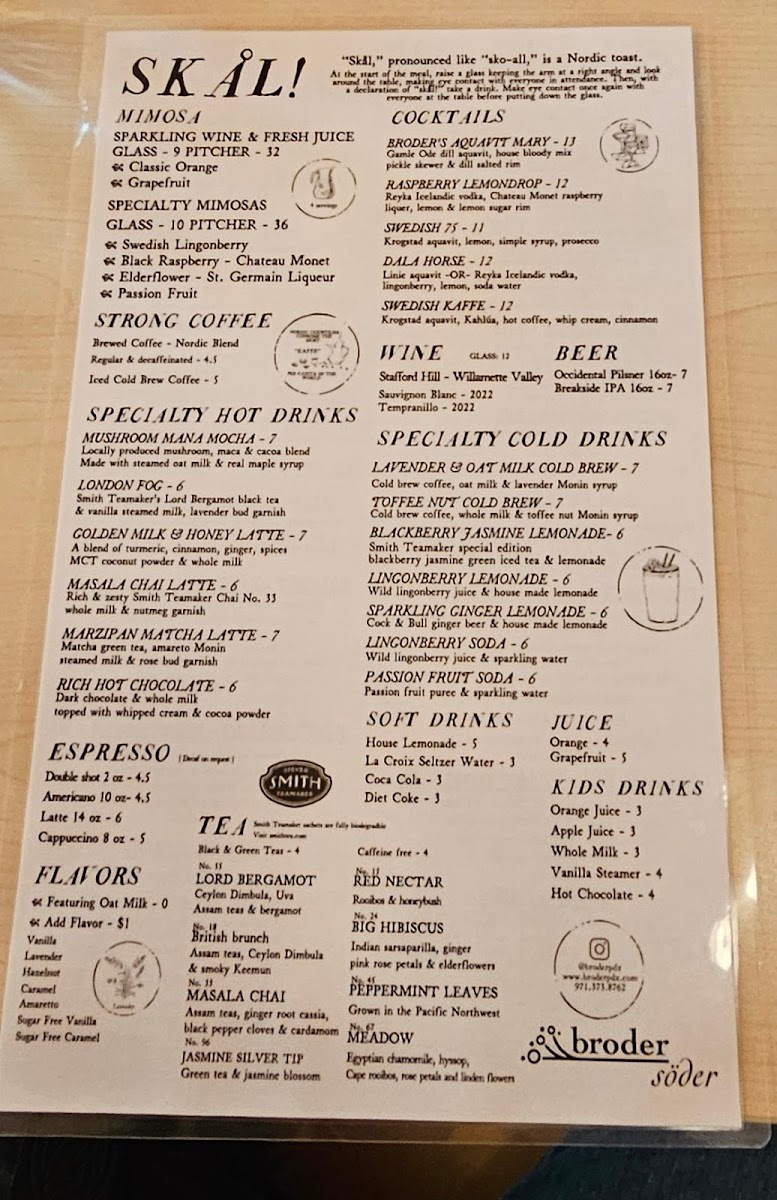 SKÅL!
"Skål," pronounced like "sko-all," is a Nordic toast.
At the start of the meal, raise a glass keeping the arm at a right angle and look
around the table, making eye contact with everyone in attendance. Then, with
a declaration of "skål!" take a drink. Make eye contact once again with
everyone at the table before putting down the glass.
MIMOSA
SPARKLING WINE & FRESH JUICE
GLASS - 9 PITCHER - 32
Classic Orange
Grapefruit
4 servings
SPECIALTY MIMOSAS
GLASS - 10 PITCHER - 36
Swedish Lingonberry
Black Raspberry - Chateau Monet
Elderflower - St. Germain Liqueur
Passion Fruit
STRONG COFFEE
Brewed Coffee - Nordic Blend
Regular & decaffeinated - 4.5
Iced Cold Brew Coffee - 5
"KAFFE"
SPECIALTY HOT DRINKS
MUSHROOM MANA MOCHA - 7
Locally produced mushroom, maca & cacoa blend
Made with steamed oat milk & real maple syrup
LONDON FOG - 6
Smith Teamaker's Lord Bergamot black tea
& vanilla steamed milk, lavender bud garnish
GOLDEN MILK & HONEY LATTE - 7
A blend of turmeric, cinnamon, ginger, spices
MCT coconut powder & whole milk
MASALA CHAI LATTE - 6
Rich & zesty Smith Teamaker Chai No. 33
whole milk & nutmeg garnish
MARZIPAN MATCHA LATTE - 7
Matcha green tea, amareto Monin
steamed milk & rose bud garnish
RICH HOT CHOCOLATE - 6
Dark chocolate & whole milk
topped with whipped cream & cocoa powder
ESPRESSO | Decaf on request |
Double shot 2 oz - 4.5
Americano 10 oz- 4.5
Latte 14 oz - 6
Cappuccino 8 oz - 5
FLAVORS
Featuring Oat Milk - 0
Add Flavor - $1
Vanilla
Lavender
Hazelnut
Caramel
Amaretto
Sugar Free Vanilla
Sugar Free Caramel
Lavender
COCKTAILS
BRODER'S AQUAVIT MARY - 13
Gamle Ode dill aquavit, house bloody mix
pickle skewer & dill salted rim
RASPBERRY LEMONDROP - 12
Reyka Icelandic vodka, Chateau Monet raspberry
liquer, lemon & lemon sugar rim
SWEDISH 75 - 11
Krogstad aquavit, lemon, simple syrup, prosecco
DALA HORSE - 12
Linie aquavit -OR- Reyka Icelandic vodka,
lingonberry, lemon, soda water
SWEDISH KAFFE - 12
Krogstad aquavit, Kahlúa, hot coffee, whip cream, cinnamon
WINE GLASS: 12
Stafford Hill - Willamette Valley
Sauvignon Blanc - 2022
Tempranillo - 2022
BEER
Occidental Pilsner 16oz- 7
Breakside IPA 16oz - 7
SPECIALTY COLD DRINKS
LAVENDER & OAT MILK COLD BREW - 7
Cold brew coffee, oat milk & lavender Monin syrup
TOFFEE NUT COLD BREW - 7
Cold brew coffee, whole milk & toffee nut Monin syrup
BLACKBERRY JASMINE LEMONADE- 6
Smith Teamaker special edition
blackberry jasmine green iced tea & lemonade
LINGONBERRY LEMONADE - 6
Wild lingonberry juice & house made lemonade
SPARKLING GINGER LEMONADE - 6
Cock & Bull ginger beer & house made lemonade
LINGONBERRY SODA - 6
Wild lingonberry juice & sparkling water
PASSION FRUIT SODA - 6
Passion fruit puree & sparkling water
SOFT DRINKS
House Lemonade - 5
La Croix Seltzer Water - 3
Coca Cola - 3
Diet Coke - 3
JUICE
Orange - 4
Grapefruit - 5
KIDS DRINKS
Orange Juice - 3
Apple Juice - 3
Whole Milk - 3
Vanilla Steamer - 4
Hot Chocolate - 4
STEVEN
SMITH
TEAMAKER
TEA Smith Teamaker sachets are fully biodegradable
Visit smithtea.com
Black & Green Teas - 4
No. 55
LORD BERGAMOT
Ceylon Dimbula, Uva
Assam teas & bergamot
No. 18
British brunch
Assam teas, Ceylon Dimbula
& smoky Keemun
No. 33
MASALA CHAI
Assam teas, ginger root cassia,
black pepper cloves & cardamom
No. 96
JASMINE SILVER TIP
Green tea & jasmine blossom
Caffeine free - 4
No.
RED NECTAR
Rooibos & honeybush
No. 24
BIG HIBISCUS
Indian sarsaparilla, ginger
pink rose petals & elderflowers
No. 45
PEPPERMINT LEAVES
Grown in the Pacific Northwest
No. 67
MEADOW
Egyptian chamomile, hyssop,
Cape rooibos, rose petals and linden flowers
@broderpdx
www.broderpdx.com
971.373.8762
broder
söder